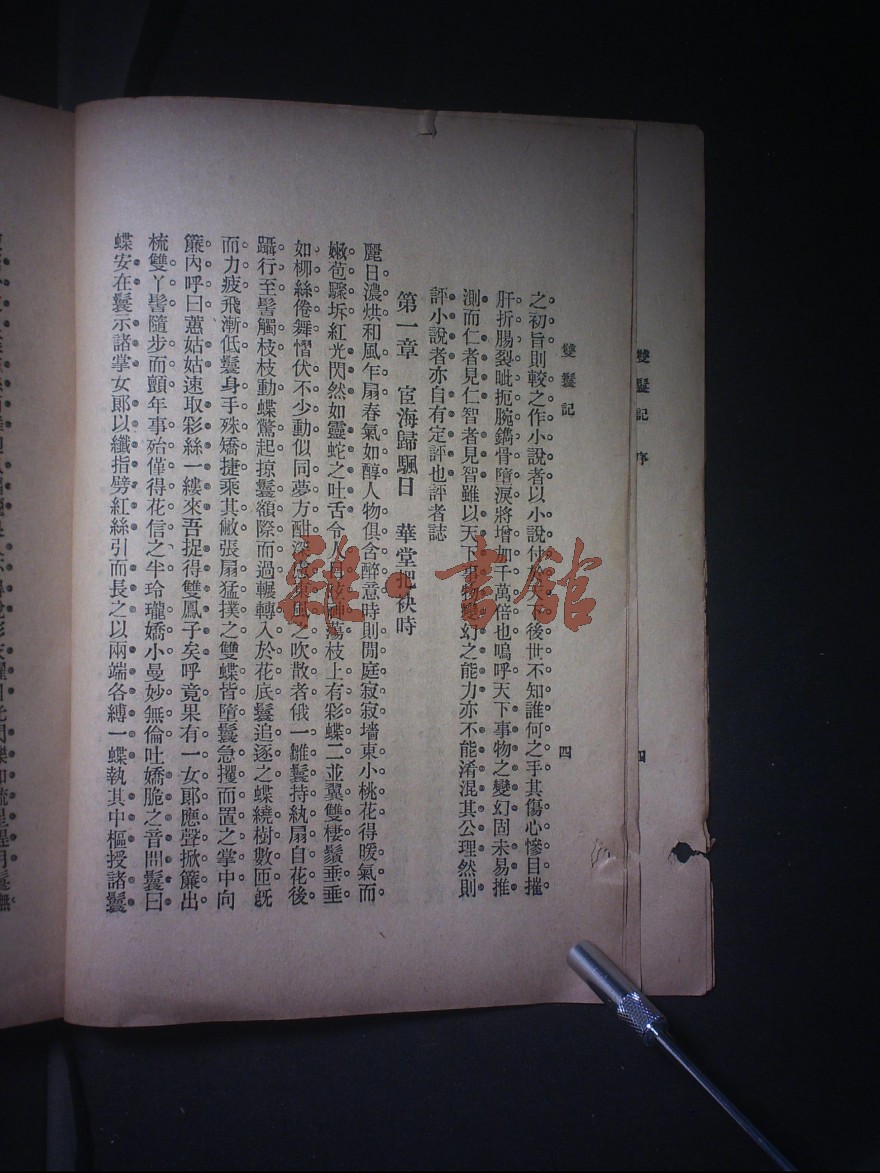 雙鬟記序
四
雙鬟記
四
之初旨則較之作小說者以小說付於天下後世不知誰何之手其傷心慘目摧
肝折腸裂眦扼腕鐫骨墮淚將增加千萬倍也嗚呼天下事物之變幻固未易推
測而仁者見仁智者見智雖以天下事物變幻之能力亦不能淆混其公理然則
評小說者亦自有定評也評者誌
第一章 宦海歸颿日 華堂把袂時
麗日濃烘和風乍扇春氣如醇人物俱含醉意時則閒庭寂寂墻東小桃花得暖氣而
嫩苞驟坼紅光閃然如靈蛇之吐舌令人目炫神蕩枝上有彩蝶二並翼雙棲鬚垂垂
如柳絲倦舞慴伏不少動似同夢方酣深之吹散者俄一雛鬟持紈扇自花後
躡行至髻觸枝枝動蝶驚起掠鬟額際而過輾轉入於花底鬟追逐之蝶繞樹數匝旣
而力疲飛漸低鬟身手殊矯捷乘其敝張扇猛撲之雙蝶皆墮鬟急攫而置之掌中向
簾內呼曰蕙姑姑速取彩絲一縷來吾捉得雙鳳子矣呼竟果有一女郞應聲掀簾出
梳雙丫髻隨步而顫年事殆僅得花信之半玲瓏嬌小曼妙無倫吐嬌脆之音問鬟曰
蝶安在鬟示諸掌女郞以纖指劈紅絲引而長之以兩端各縛一蝶執其中樞授諸鬟
雜·書館